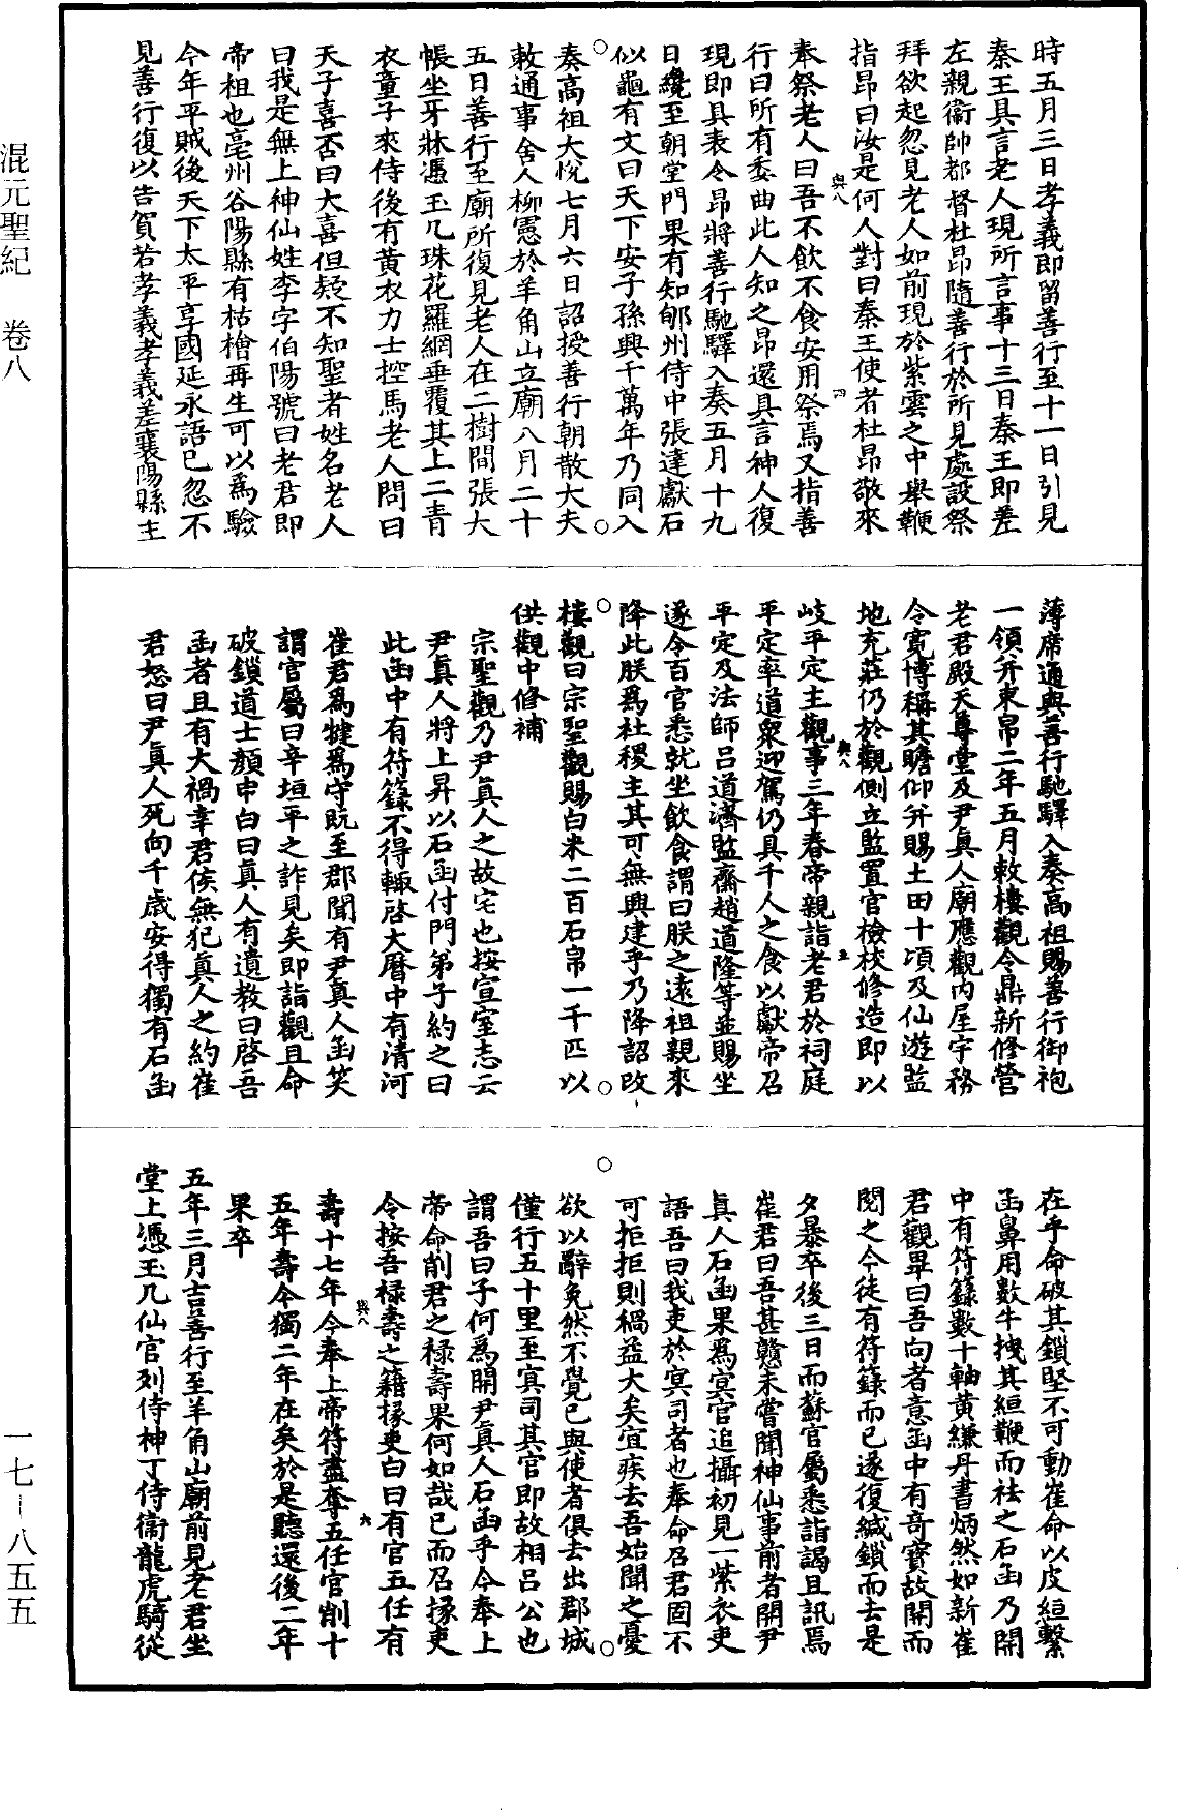 混元聖紀　卷八
時五月三日孝義即留善行至十一日引見
秦王具言老人現所言事十三日秦王即差
左親衛帥都督杜昂隨善行於所見處設祭
拜欲起忽見老人如前現於紫雲之中舉鞭
指昂曰汝是何人對曰秦王使者杜昂敬來
與八　四
奉祭老人曰吾不飲不食安用祭焉又指善
行曰所有委曲此人知之昂還具言神人復
現即具表令昂將善行馳驛入奏五月十九
日纔至朝堂門果有知郇州侍中張達獻石
似龜有文曰天下安子孫興千萬年乃同入
奏高祖大悅七月六日詔授善行朝散大夫
敕通事舍人柳憲於羊角山立廟八月二十
五日善行至廟所復見老人在二樹間張大
帳坐牙牀憑玉几珠花羅網垂覆其上二青
衣童子來侍後有黃衣力士控馬老人問曰
天子喜否曰大喜但疑不知聖者姓名老人
曰我是無上神仙姓李字伯陽號曰老君即
帝祖也亳州谷陽縣有枯檜再生可以為驗
今年平賊後天下太平享國延永語已忽不
見善行復以告賀若孝義孝義差襄陽縣主
薄席通與善行馳驛入奏高祖賜善行御袍
一領并束帛二年五月敕樓觀令鼎新修營
老君殿天尊堂及尹真人廟應觀內屋宇務
令寬博稱其瞻仰并賜土田十頃及仙遊監
地充莊仍於觀側立監置官檢校修造即以
與八　五
岐平定主觀事三年春帝親詣老君於祠庭
平定率道衆迎駕仍具千人之食以獻帝召
平定及法師呂道濟監齋趙道隆等並賜坐
遂令百官悉就坐飲食謂曰朕之遠祖親來
降此朕為社稷主其可無興建乎乃降詔改
樓觀曰宗聖觀賜白米二百石帛一千匹以
供觀中修補
宗聖觀乃尹真人之故宅也按宣室志云
尹真人將上昇以石函付門弟子約之曰
此函中有符籙不得輒啓大曆中有清河
崔君為犍為守既至郡聞有尹真人函笑
謂官屬曰辛垣平之詐見矣即詣觀且命
破鎖道士顏中白曰真人有遺教曰啓吾
函者且有大禍幸君侯無犯真人之約崔
君怒曰尹真人死向千歲安得獨有石函
在乎命破其鎖堅不可動崔命以皮絙繫
函鼻用數牛拽其絙鞭而祛之石函乃開
中有符籙數十軸黃縑丹書炳然如新崔
君觀畢曰吾向者意函中有奇寶故開而
閱之今徒有符籙而已遂復緘鎖而去是
夕暴卒後三日而蘇官屬悉詣謁且訊焉
崔君曰吾甚戇未嘗聞神仙事前者開尹
真人石函果為冥官追攝初見一紫衣吏
語吾曰我吏於冥司者也奉命召君固不
可拒拒則禍益大矣宜疾去吾始聞之憂
欲以辭免然不覺已與使者俱去出郡城
僅行五十里至冥司其官即故相呂公也
謂吾曰子何為開尹真人石函乎今奉上
帝命削君之祿壽果何如哉已而召掾吏
令按吾祿壽之籍掾吏白曰有官五任有
與八　六
壽十七年今奉上帝符盡奪五任官削十
五年壽今獨二年在矣於是聽還後二年
果卒
五年三月吉善行至羊角山廟前見老君坐
堂上憑玉几仙官列侍神丁侍衛龍虎騎從
一七－八五五